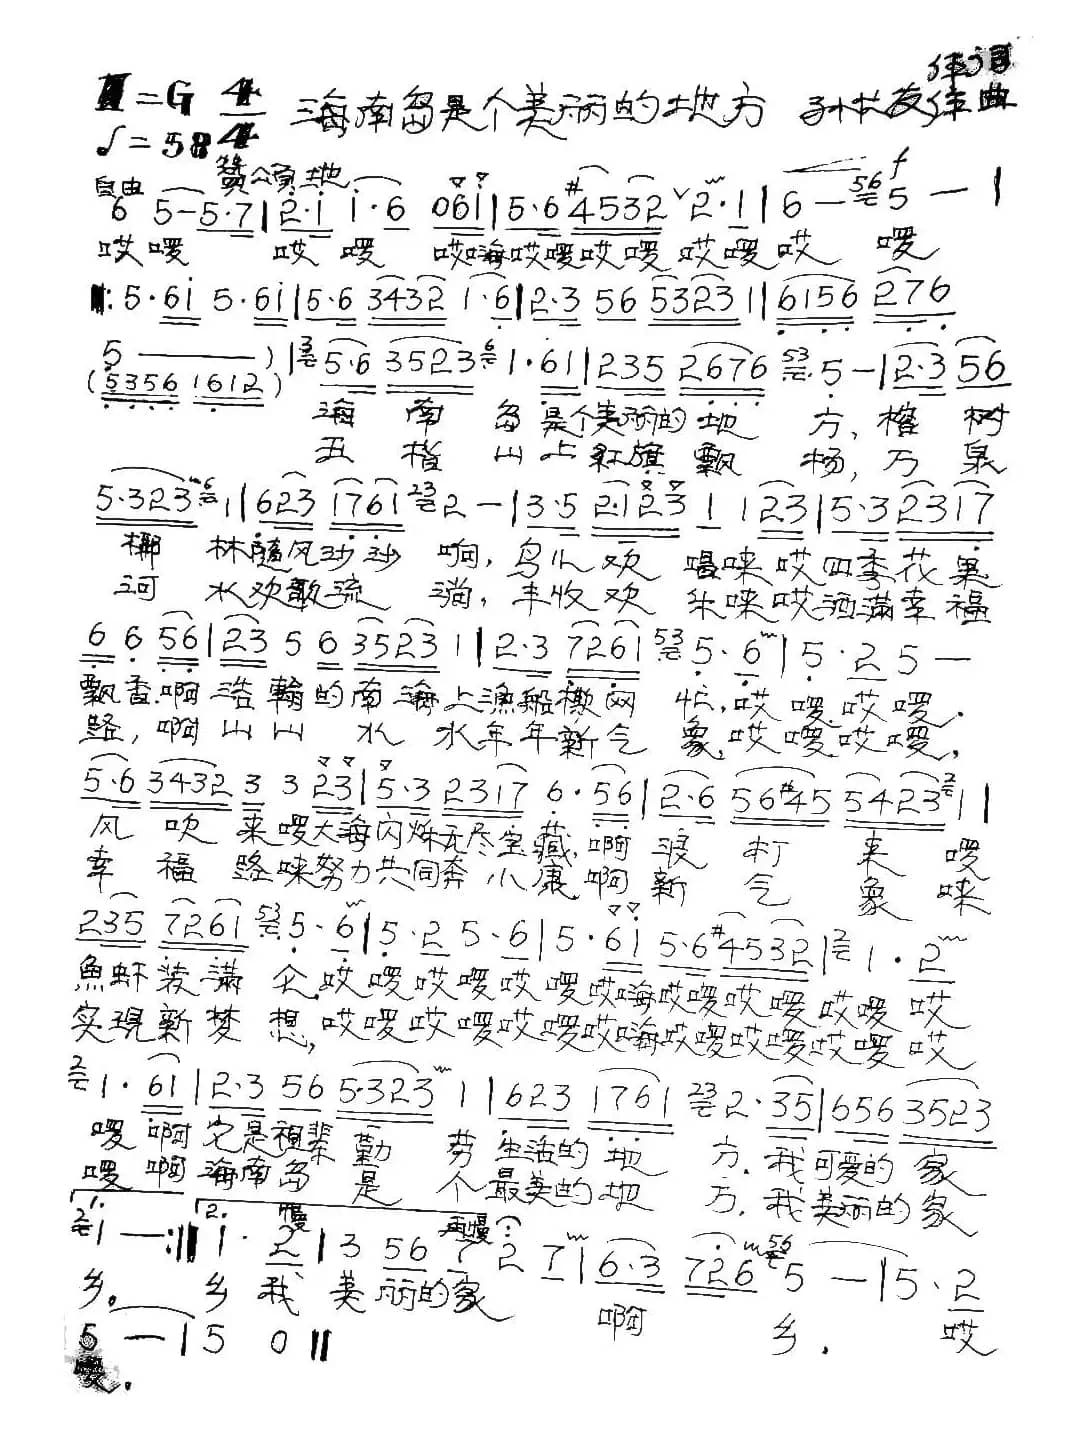 作词
=G 4/4 海南岛是个美丽的地方 孙 友作曲
♩=58
自由 赞颂地 f
6 5-5·7|2·1 1·6 061|5·6 #4532 ∨2·1|6- 56 5-|
哎啰 哎啰 哎嗨哎啰哎啰 哎啰哎 啰
‖:5·61 5·61|5·6 3432 1·6|2·3 56 5323 1|6156 276
5——)|3 5·6 3523 6 1·61|235 2676 53 5-|2·3 56
(5356 1612)
海 南 岛是个美丽的地 方,榕 树
五 指 山上红旗飘 扬,万 泉
5·323 6 1|623 1761 23 2-|3·5 2·123 1 123|5·3 2317
椰 林随风沙沙 响,鸟儿欢 唱唻哎四季花果
河 水欢歌流 淌,丰收欢 乐唻哎洒满幸福
6 6 56|23 5 6 3523 1|2·3 7261 53 5·6|5·2 5-
飘香.啊浩瀚的南海上渔船撒网 忙,哎啰.哎啰.
路,啊山山水水年年新气 象,哎啰哎啰,
5·6 3432 3 3 23|5·3 2317 6·56|2·6 56#45 5423 2 1|
风吹来啰大海闪烁无尽宝藏,啊浪打来啰
幸福路唻努力共同奔小康,啊新气象唻
235 7261 53 5·6|5·2 5·6|5·61 5·6#4532|2 1·2
鱼虾装满仓,哎啰哎啰哎啰哎嗨哎啰哎啰哎啰哎
实现新梦想,哎啰哎啰哎啰哎嗨哎啰哎啰哎啰哎
2 1·61|2·3 56 5·323 1|623 1761 23 2·35|656 3523
啰 啊它是祖辈勤 劳生活的地 方.我可爱的家
啰 啊海南岛是 个最美的地 方,我美丽的家
1. 2. 慢 再慢
2 1-:‖1·2|3 56 7 2 7|6·3 726 56 5-|5·2
乡。 乡我美丽的家 啊 乡. 哎
5-|5 0‖
啰.